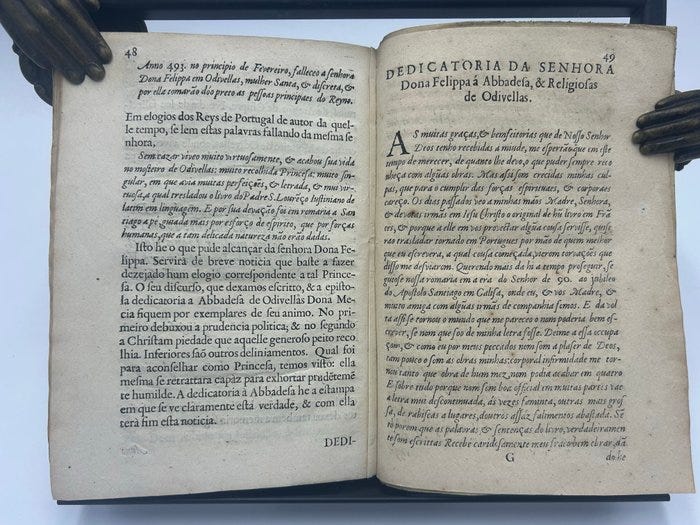 48
Anno 493. no principio de Fevereiro, falleceo a senhora
Dona Felippa em Odivellas, mulher Santa, & discreta, &
por ella tomarão dóo preto as pessoas principaes do Reyno.
Em elogios dos Reys de Portugal de autor da quel-
le tempo, se lem estas palavras fallando da mesma se
nhora.
Sem cazar viveo muito virtuosamente, & acabou sua vida
no mosteiro de Odivellas; muito recolhida Princesa; muito sin-
gular, em que avia muitas perfeições, & letrada, & mui vir-
tuosa, a qual tresladou o livro do Padre S. Lourēço Iustiniano de
latim em lingoagem. E por sua devação foi em romaria a San
ctiago a pé, guiada mais por esforço de espirito, que por forças
humanas, que a tam delicada natureza não erão dadas.
Isto he o que pude alcançar da senhora Dona Fe-
lippa. Servirá de breve noticia que baste a fazer
dezejado hum elogio correspondente a tal Prince-
sa. O seu discurso, que dexamos escritto, & a episto-
la dedicatoria a Abbadesa de Odivellas Dona Me-
cia fiquem por exemplares de seu animo. No pri-
meiro debuxou a prudencia politica; & no segundo
a Christam piedade que aquelle generoso peito reco
lhia. Inferiores saõ outros deliniamentos. Qual foi
para aconselhar como Princesa, temos visto: ella
mesma se retrattara capaz para exhortar prudētemē
te humilde. A dedicatoria à Abbadesa he a estampa
em que se ve claramente está verdade, & com ella
terá fim esta noticia.
DEDI-
49
DEDICATORIA DA SENHORA
Dona Felippa á Abbadesa, & Religiosas
de Odivellas.
AS muitas graças, & bemfeitorias que de Nosso Senhor
Deos tenho recebidas a miude, me espertão que em este
tempo de merecer, de quanto lhe devo, o que puder sempre reco
nheça com algũas obras. Mas asi som crecidas minhas cul-
pas, que para o cumprir das forças espirituaes, & corporaes
careço. Os dias passados veo a minhas mãos Madre, Senhora,
& devotas irmãs em Iesu Christo o original de hũ livro em Frã
cés, & porque a elle em vos proveitar algũa cousa servisse, quise-
ra o trasladar tornado em Portugues por mão de quem melhor
que eu escrevera, a qual cousa começada, vierom torvações que
disso me desviarom. Querendo mais da hi a tempo proseguir, se
guiose nossa romaria em a era do Senhor de 90. ao jubileo
do Apostolo Santiago em Galisa, onde eu, & vos Madre, &
muito amiga com algũas irmãs de companhia fomos. E da vol
ta assi se tornou o mundo que me pareceo nom poderia bem es-
crever, se nom que foi de minha letra fosse. Deime a essa occupa
çom, & como eu por meus peccados nem som a plaser de Deos,
tam pouco o som as obras minhas: corporal infirmidade me tor-
nou tanto que obra de hum mez nom podia acabar em quatro
E sobre tudo porque nom som boa official em muitas partes vai
a letra mui descontinuada, ás vezes faminta, outras mais gros
sa, de rabiscas a lugares, doutros assaz falimentos abastada. Se
to porem que as palavras & sentenças do livro, verdadeiramen
te som escrittas Recebé caridosamente meu fraco bem obrar, nã
G
do he